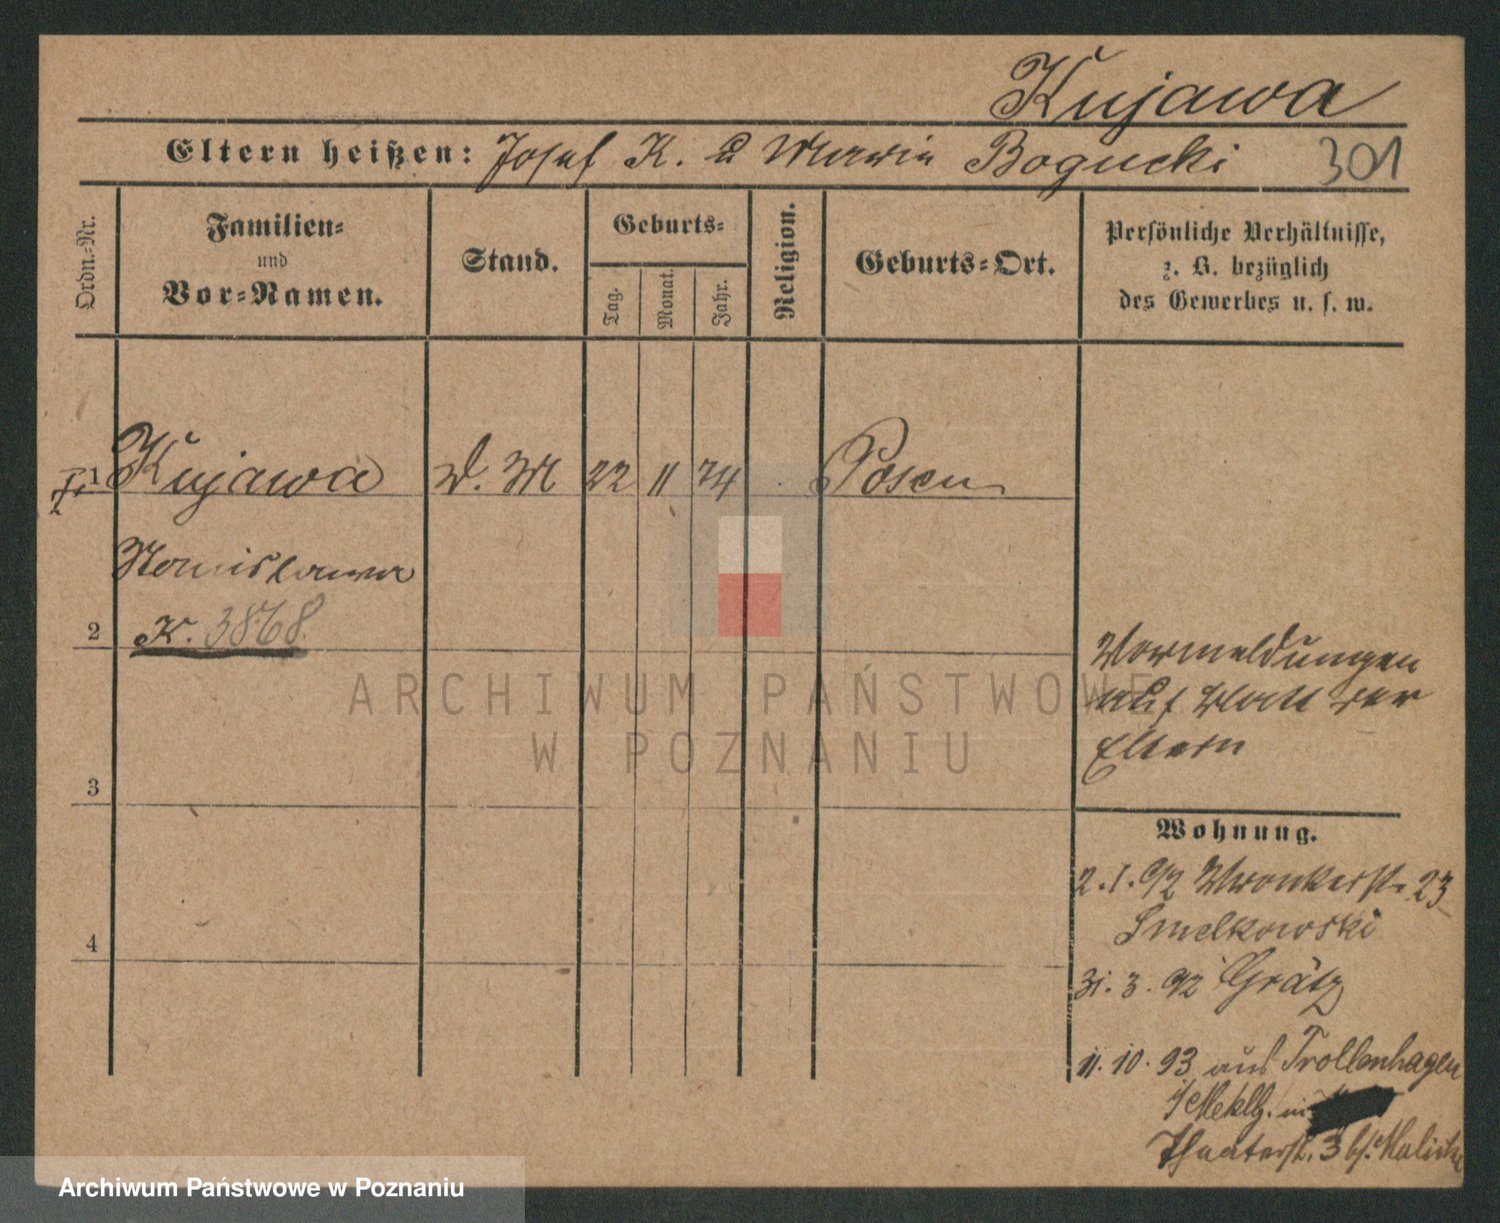 Kujawa
Eltern heißen: Josef K. u Marie Bogucki 301
Ordn.-Nr.
Familien-
und
Vor-Namen.
Stand.
Geburts-
Tag.
Monat.
Jahr.
Religion.
Geburts-Ort.
Persönliche Verhältnisse,
z. B. bezüglich
des Gewerbes u. s. w.
1 Kujawa D. M 22 11 74 Posen
Stanislawa
2 K. 3868.
3
4
Vormeldungen
auf Blatt der
Eltern
Wohnung.
2. 1. 92 Wronkerstr. 23
Smelkowski
31. 3. 92 Grätz
11. 10. 93 aus Trollenhagen
i/Meklb. in
Theaterstr. 3 bs. Malicke
ARCHIWUM PAŃSTWOWE
W POZNANIU
Archiwum Państwowe w Poznaniu